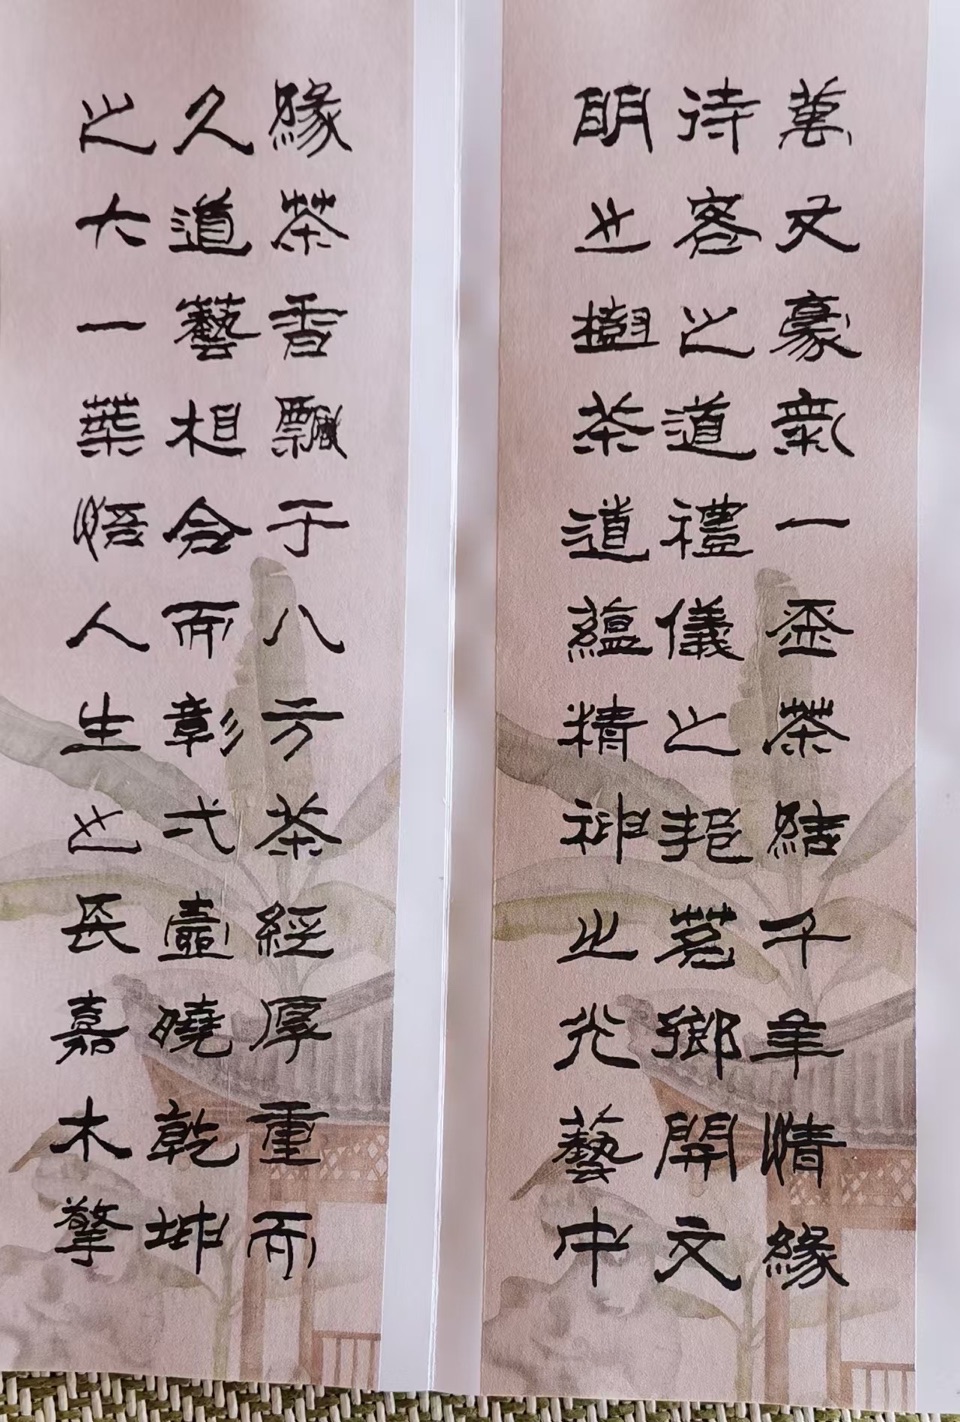 萬丈豪氣一盃茶結千年情緣
待客之道禮儀之邦茗鄉開文
明也樹茶道蘊精神之光藝中
緣茶香飄于八方茶經厚重而
久道藝相合而彰弌壺曉乾坤
之大一葉悟人生也長嘉木擎